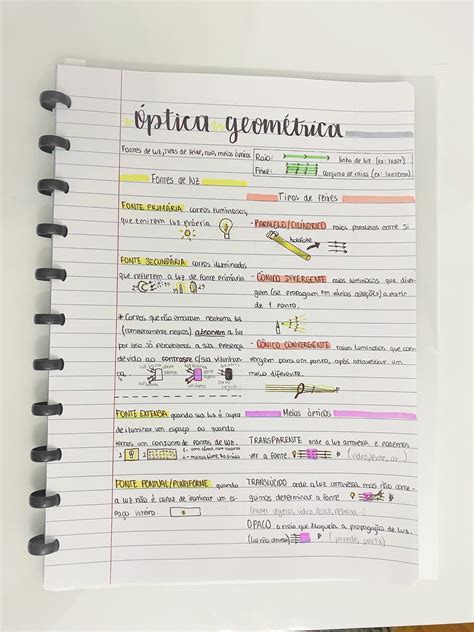 óptica geométrica
Fontes de luz, tipos de feixe, raio, meios ópticos
Raio: linha de luz (ex: laser)
Feixe: conjunto de raios (ex: lanterna)
Fontes de luz
FONTE PRIMÁRIA corpos luminosos,
que emitem luz própria
FONTE SECUNDÁRIA corpos iluminados
que refletem a luz de fonte primária
* Corpos que não emanam nenhuma luz
(completamente negros) absorvem a luz
por isso só percebemos a sua presença
devido ao contraste c/sua vizinhan-
ça.
FONTE EXTENSA quando sua luz é capaz
de iluminar um espaço ou quando
temos um conjunto de fontes de luz.
FONTE PONTUAL/PUNTIFORME quando
a luz não é capaz de iluminar um es-
paço inteiro.
Tipos de feixes
PARALELO/CILÍNDRICO raios paralelos entre si
holofote
CÔNICO DIVERGENTE raios luminosos que diver-
gem (se propagam em várias direções) a partir
de 1 ponto.
CÔNICO CONVERGENTE raios luminosos que con-
vergem para um ponto, após atravessar um
meio diferente.
Meios ópticos
TRANSPARENTE onde a luz atravessa e podemos
ver a fonte. (vidro, lente, ar)
TRANSLÚCIDO onde a luz atravessa mas não conse-
guimos determinar a fonte
(papel vegetal, vidro fosco, neblina)
OPACO o meio que bloqueia a propagação de luz.
(luz não atravessa) (parede, porta)